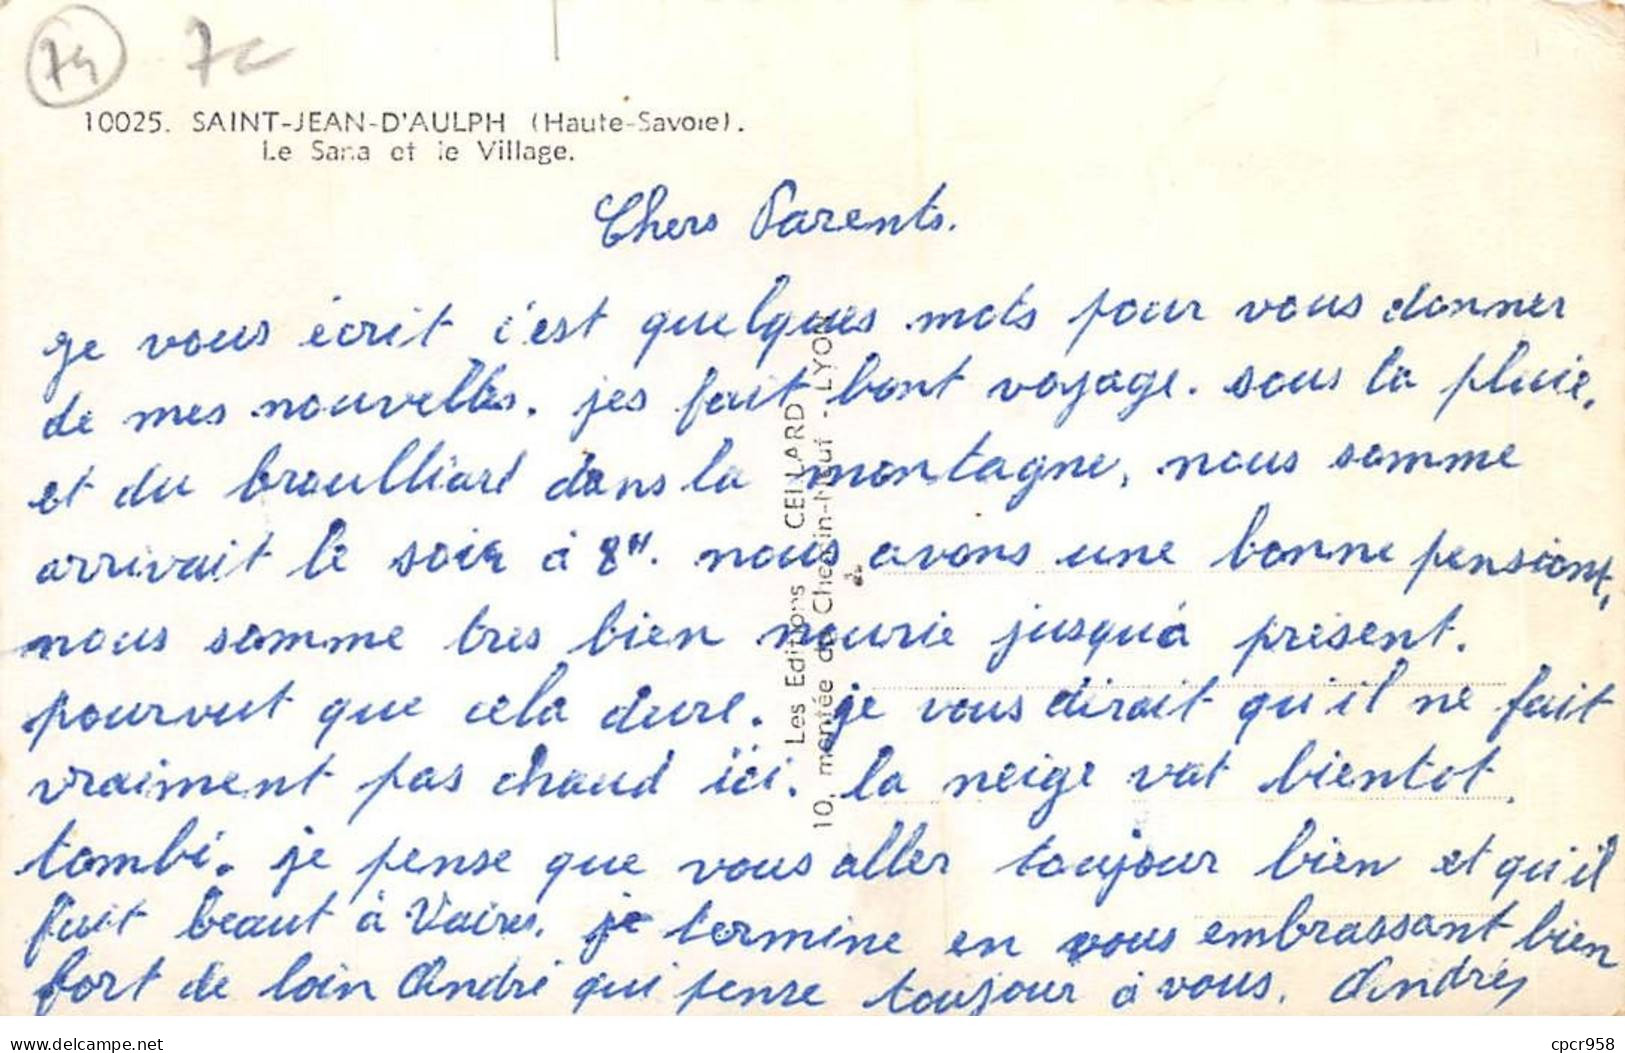 74 7c
10025. SAINT-JEAN-D'AULPH (Haute-Savoie).
Le Sana et le Village.
Chers Parents.
je vous écrit c'est quelques mots pour vous donner
de mes nouvelles. jes fait bont voyage. sous la pluie,
et du broulliard dans la montagne, nous somme
arrivait le soir à 8H. nous avons une bonne pensiont,
nous somme tres bien nourie jusquá présent.
pourvut que cela dure. je vous dirait qu'il ne fait
vraiment pas chaud ici. la neige vat bientot
tombé. je pense que vous aller toujour bien et qu'il
fait beaut à Vaires. je termine en vous embrassant bien
fort de loin André qui pense toujour à vous. André
Les Editions CELLARD
10, montée du Chemin-Neuf - LYON
www.delcampe.net
cpcr958